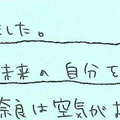 した。
未来の自分を
奈良は空気がお